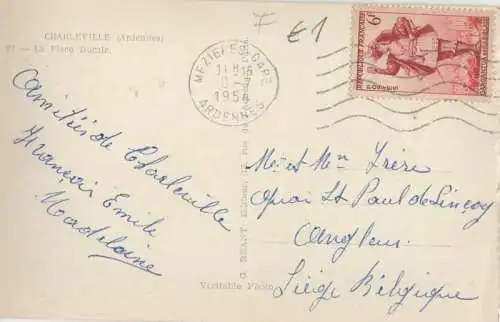 CHARLEVILLE (Ardennes)
27 - La Place Ducale.
Amitiés de Charleville
François Emile
Madeleine
MEZIERES-GARE
11 H 15
1954
ARDENNES
F
£1
6F
REPUBLIQUE FRANÇAISE
GARGANTUA
Mr et Mme Frère
Quai St Paul de Sinçay
Angleur.
Liège Belgique
G. REANT Editeur,
Véritable Photo